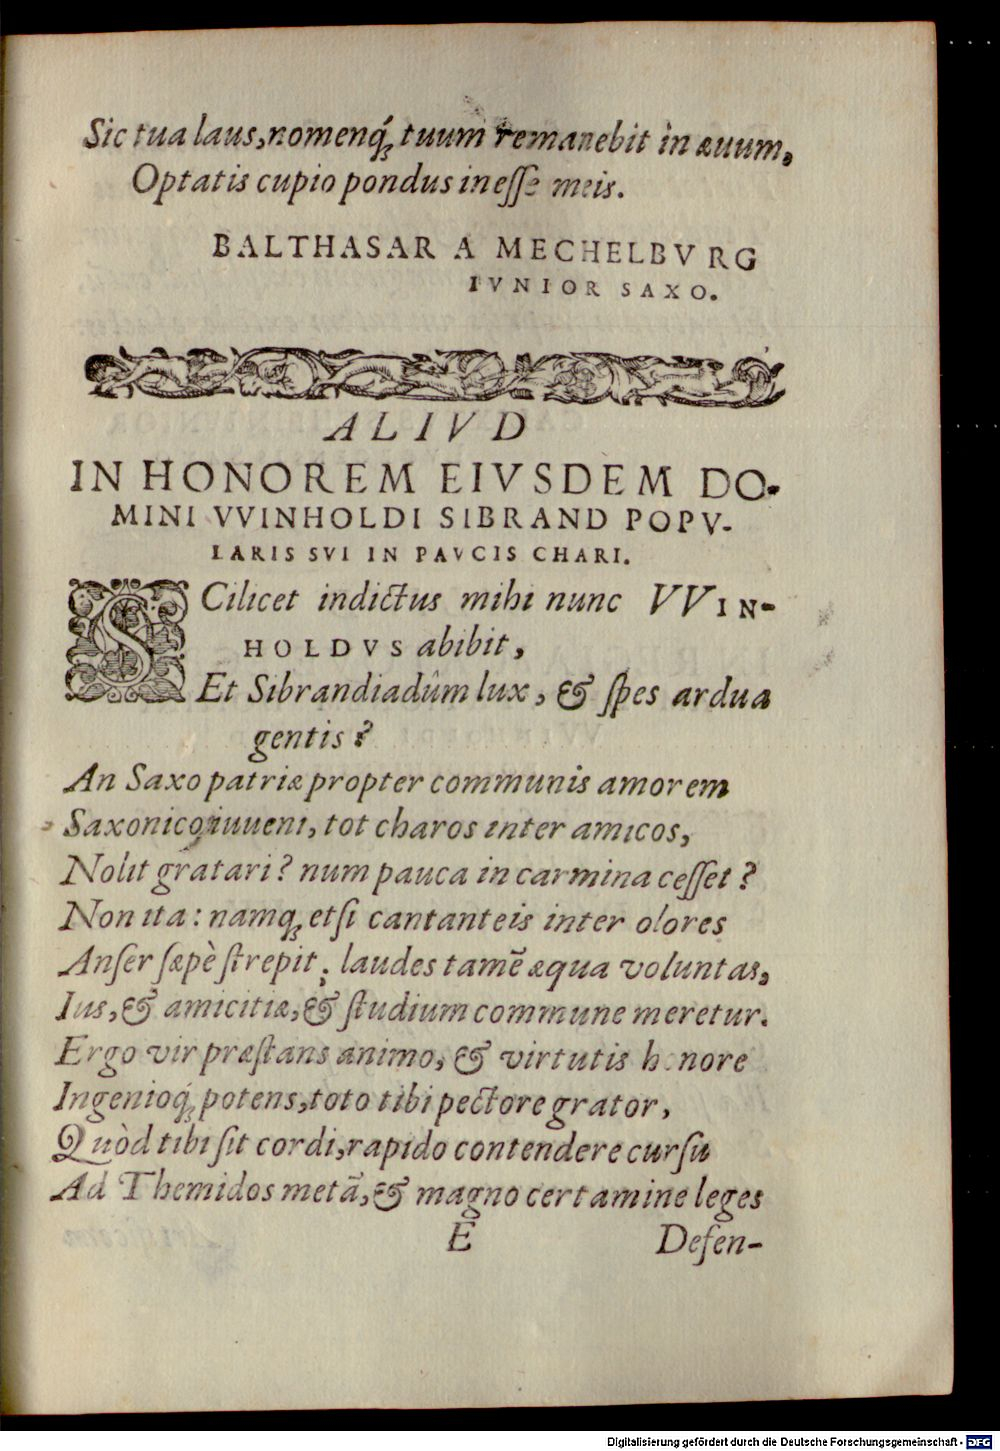 Sic tua laus, nomenq́; tuum remanebit in æuum,
Optatis cupio pondus inesse meis.
BALTHASAR A MECHELBVRG
IVNIOR SAXO.
ALIVD
IN HONOREM EIVSDEM DO-
MINI VVINHOLDI SIBRAND POPV-
LARIS SVI IN PAVCIS CHARI.
SCilicet indictus mihi nunc VVIN-
HOLDVS abibit,
Et Sibrandiadûm lux, & spes ardua
gentis?
An Saxo patriæ propter communis amorem
Saxonico iuueni, tot charos inter amicos,
Nolit gratari? num pauca in carmina cesset?
Non ita: namq; etsi cantanteis inter olores
Anser sæpè strepit; laudes tamē æqua voluntas,
Ius, & amicitiæ, & studium commune meretur.
Ergo vir præstans animo, & virtutis honore
Ingenioq́; potens, toto tibi pectore grator,
Quòd tibi sit cordi, rapido contendere cursu
Ad Themidos metā, & magno certamine leges
E Defen-
Digitalisierung gefördert durch die Deutsche Forschungsgemeinschaft - DFG